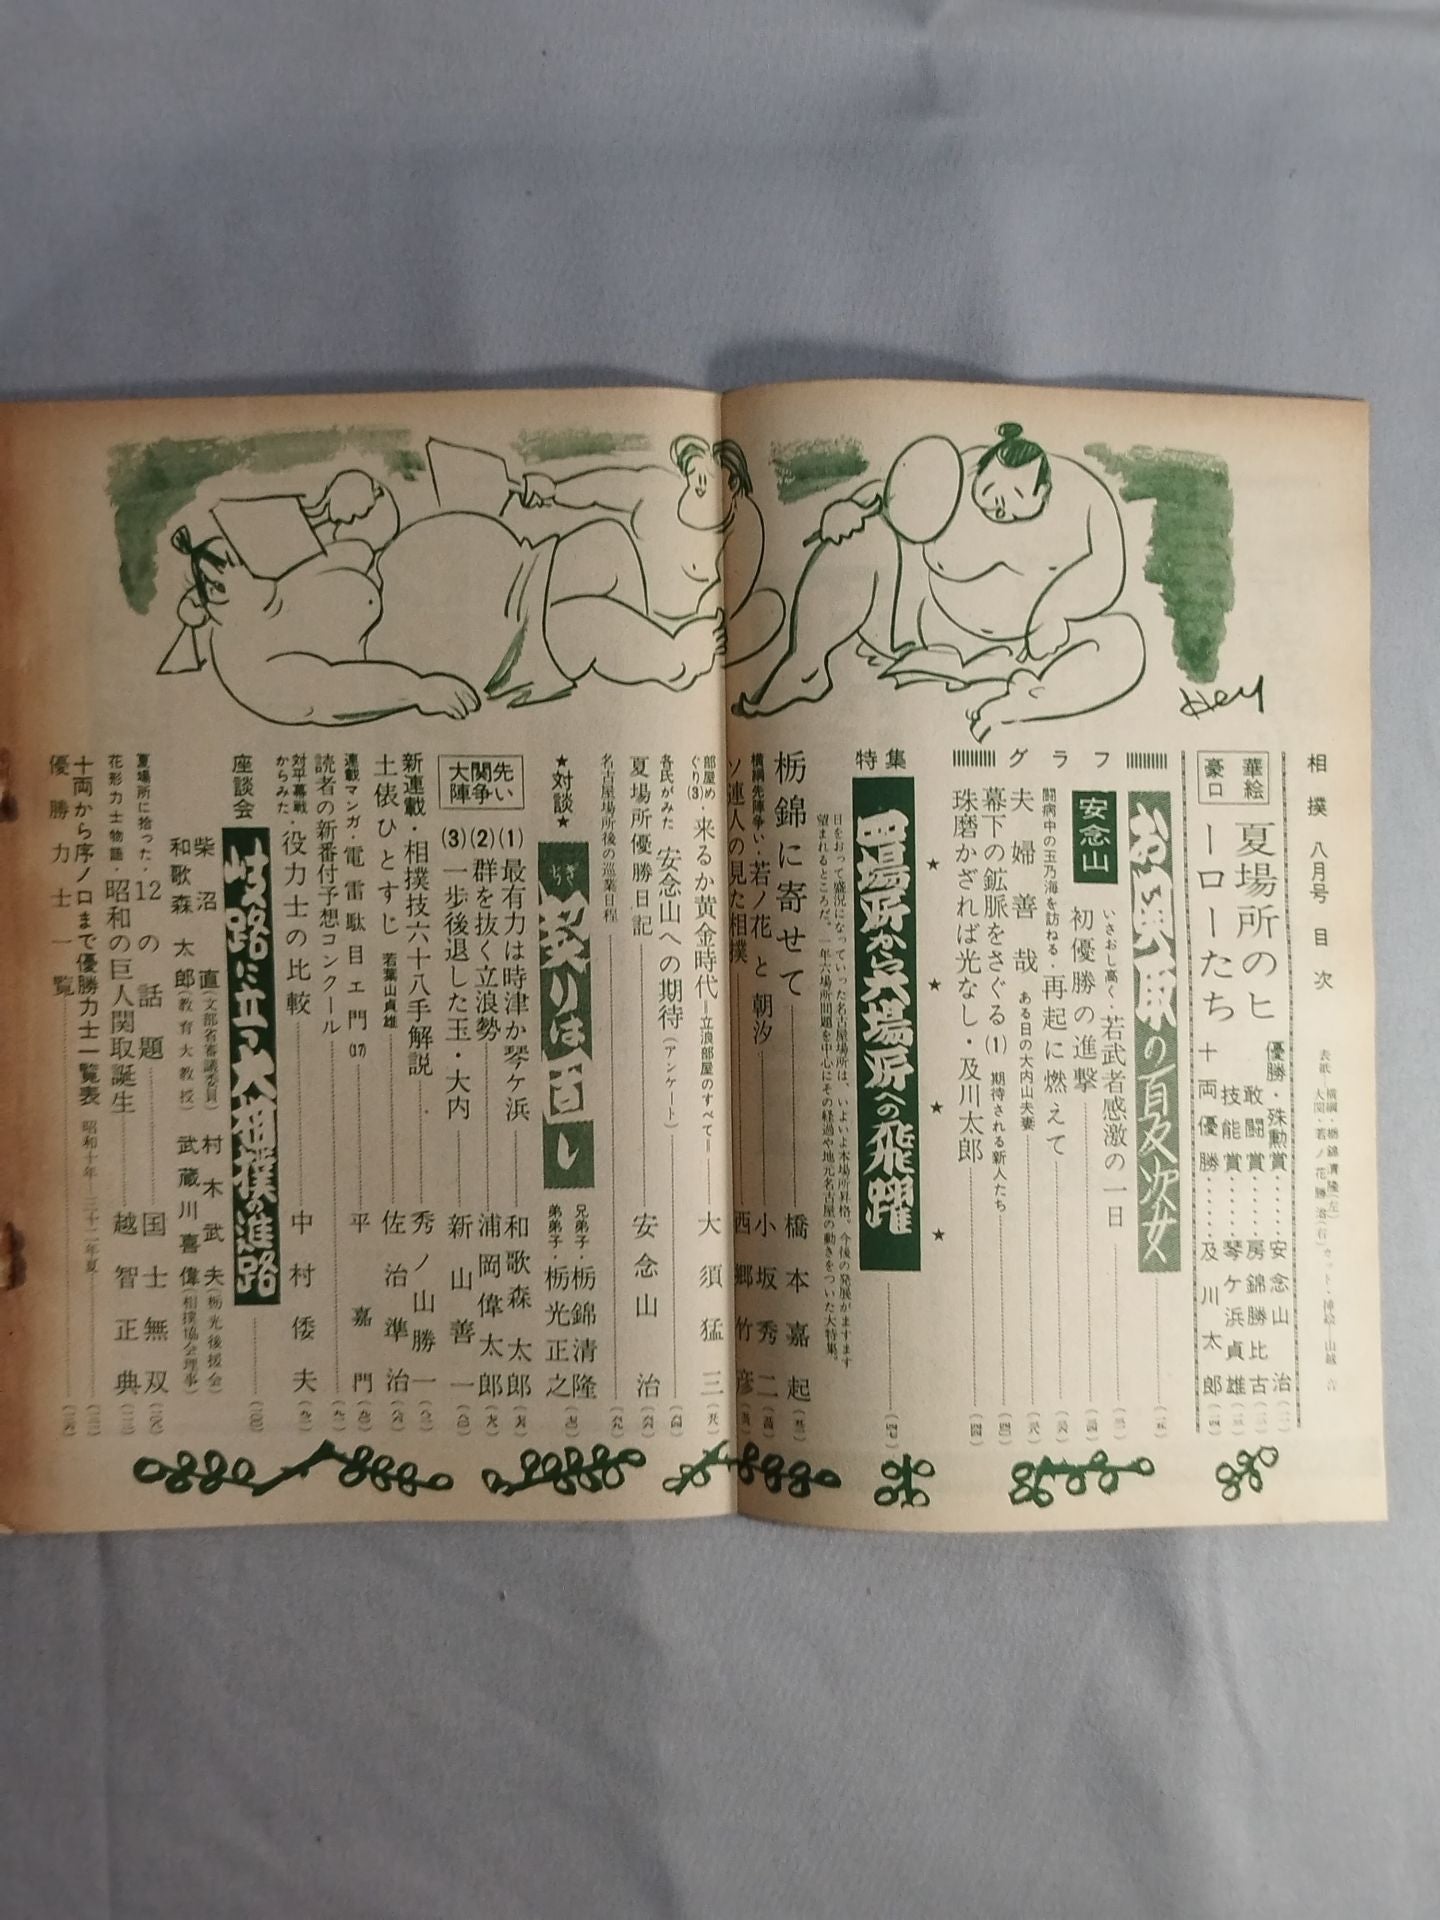 Hey
相撲 八月号 目次
表紙―横綱・栃錦清隆(左)
大関・若ノ花勝治(右)
カット・挿絵―山越
豪華
口絵
夏場所のヒーローたち
優勝・殊勲賞……安念山 治
敢闘賞……房錦勝比古
技能賞……琴ケ浜貞雄
十両優勝……及川太郎
グラフ
お相撲の夏次女
安念山
いさおし高く・若武者感激の一日
初優勝の進撃
闘病中の玉乃海を訪ねる・再起に燃えて
夫婦善哉 ある日の大内山夫妻
幕下の鉱脈をさぐる(1) 期待される新人たち
珠磨かざれば光なし・及川太郎
特集
四場所から六場所への飛躍
日をおって盛況になっていった名古屋場所は、いよいよ本場所昇格。今後の発展がますます
望まれるところだ。一年六場所問題を中心にその経過や地元名古屋の動きをついた大特集。
栃錦に寄せて 橋本嘉起
横綱先陣争い・若ノ花と朝汐 小坂秀二
ソ連人の見た相撲 西郷竹彦
部屋めぐり(3)・来るか黄金時代―立浪部屋のすべて― 大須猛三
各氏がみた 安念山への期待(アンケート)
夏場所優勝日記 安念山 治
名古屋場所後の巡業日程
★対談★
契りは固し
兄弟子・栃錦清隆
弟弟子・栃光正之
大関先陣争い
(1) 最有力は時津か琴ケ浜 和歌森太郎
(2) 群を抜く立浪勢 浦岡偉太郎
(3) 一歩後退した玉・大内 新山善一
新連載・相撲技六十八手解説 秀ノ山勝一
土俵ひとすじ 若葉山貞雄 佐治準治
連載マンガ・電雷駄目エ門(17) 平嘉門
読者の新番付予想コンクール
対平幕戦からみた・役力士の比較 中村倭夫
座談会
岐路に立つ大相撲の進路
柴沼 直(文部省審議委員) 村木武夫(栃光後援会)
和歌森太郎(教育大教授) 武蔵川喜偉(相撲協会理事)
夏場所に拾った・12の話題 国士無双
花形力士物語・昭和の巨人関取誕生 越智正典
十両から序ノ口まで優勝力士一覧表 昭和十年―三十二年夏
優勝力士一覧